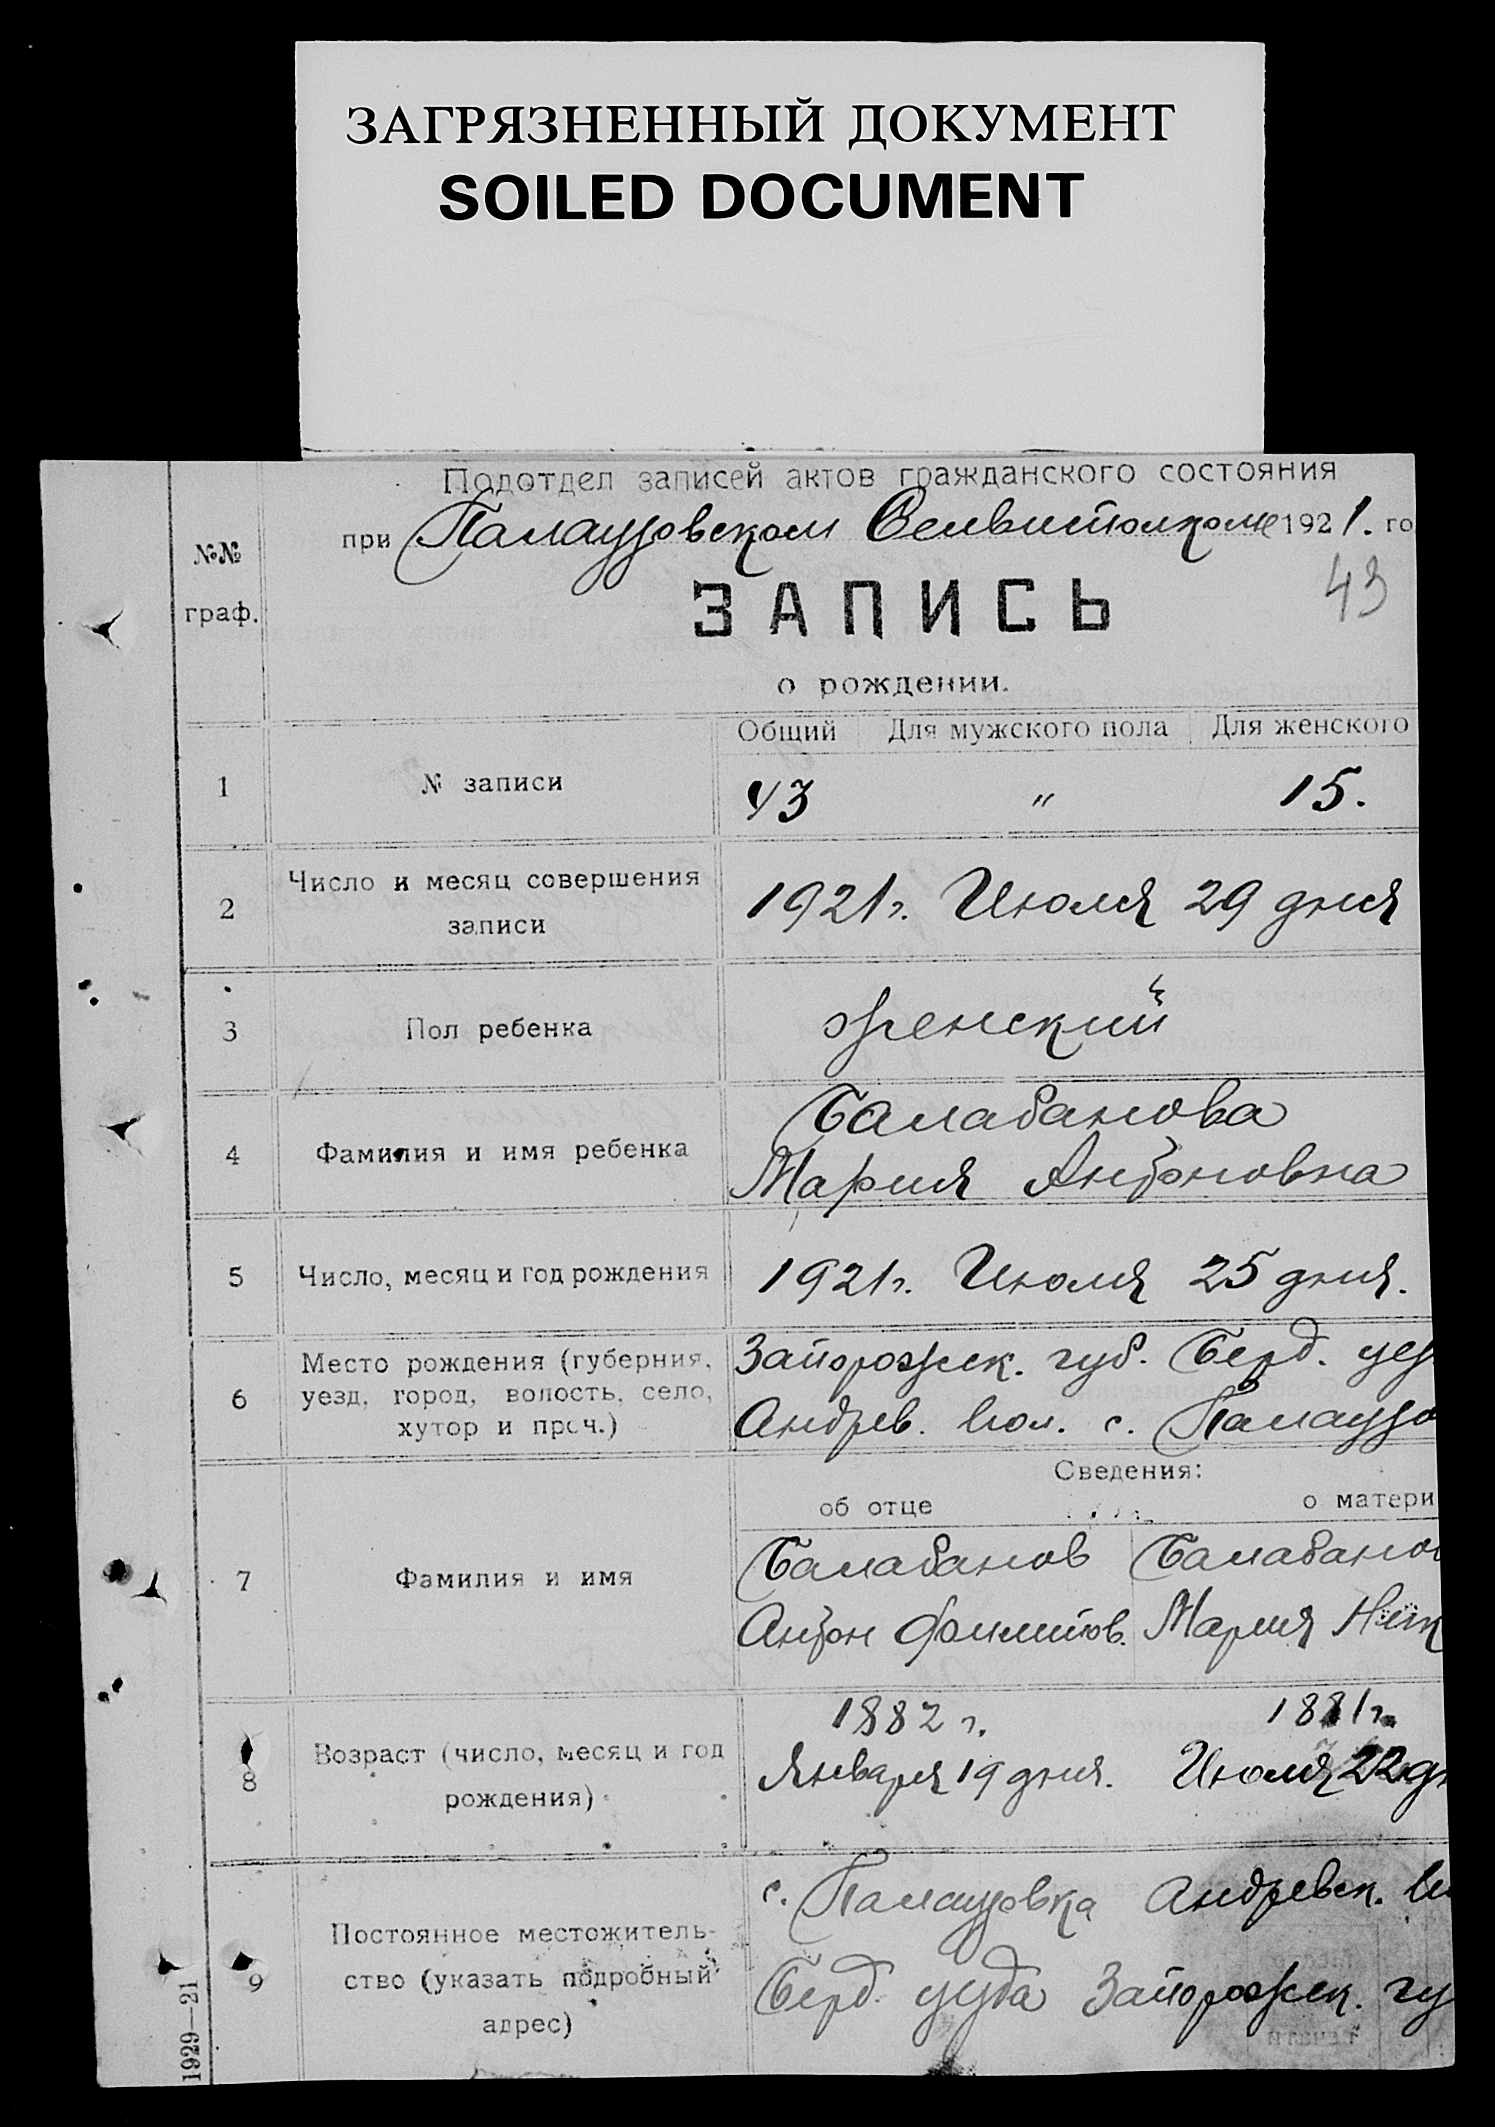 ЗАГРЯЗНЕННЫЙ ДОКУМЕНТ
SOILED DOCUMENT
Подотдел записей актов гражданского состояния
при Палаузовском Селвиполкоме 1921. го
43
№№ граф.
ЗАПИСЬ
о рождении.
Общий Для мужского пола Для женского
1 № записи 43 " 15.
2 Число и месяц совершения
записи
1921 г. Июля 29 дня
3 Пол ребенка женский
4 Фамилия и имя ребенка
Балабанова
Мария Антоновна
5 Число, месяц и год рождения 1921 г. Июля 25 дня.
6 Место рождения (губерния,
уезд, город, волость, село,
хутор и проч.)
Запорожск. губ. Берд. уез
Андрев. вол. с. Палаузо
Сведения:
об отце о матери
7 Фамилия и имя
Балабанов Балабано
Антон Филипов. Мария Ник
8 Возраст (число, месяц и год
рождения)
1882 г. 1881 г.
Января 19 дня. Июля 22 дн
9 Постоянное местожитель-
ство (указать подробный
адрес)
с. Палаузовка Андревск. в
Берд. уезда Запорожск. гу
1929—21